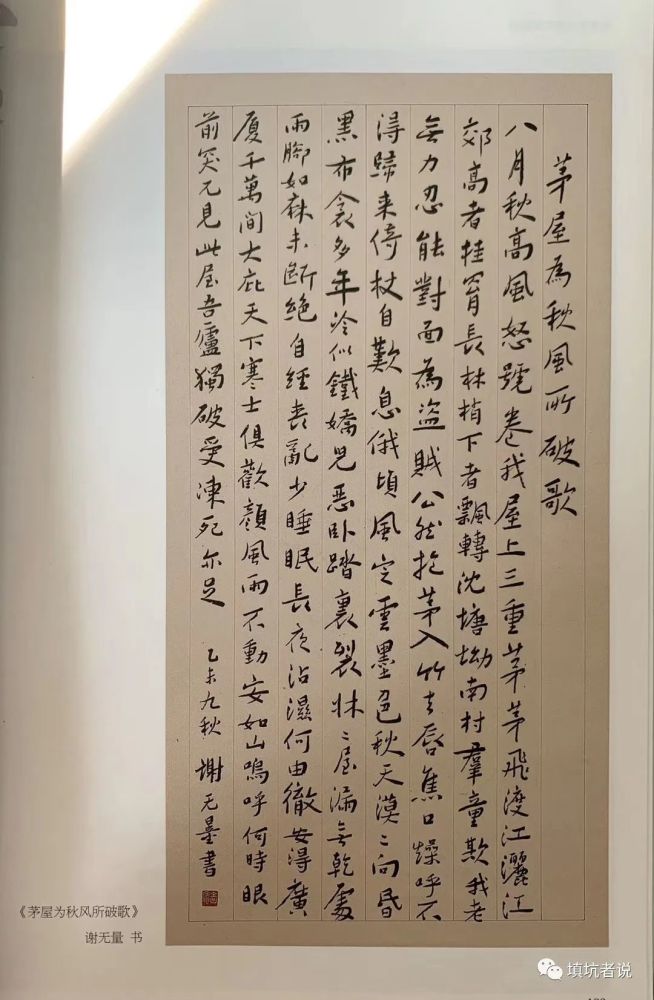 茅屋為秋風所破歌
八月秋高風怒號卷我屋上三重茅茅飛渡江灑江
郊高者挂罥長林梢下者飄轉沈塘坳南村羣童欺我老
無力忍能對面為盜賊公然抱茅入竹去唇焦口燥呼不
得歸来倚杖自歎息俄頃風定雲墨色秋天漠〻向昏
黑布衾多年冷似鐵嬌兒惡卧踏裏裂牀〻屋漏無乾處
雨腳如麻未斷絕自經喪亂少睡眠長夜沾濕何由徹安得廣
廈千萬間大庇天下寒士俱歡顏風雨不動安如山嗚呼何時眼
前突兀見此屋吾廬獨破受凍死亦足 乙未九秋 謝无量書
《茅屋为秋风所破歌》
谢无量 书
填坑者说